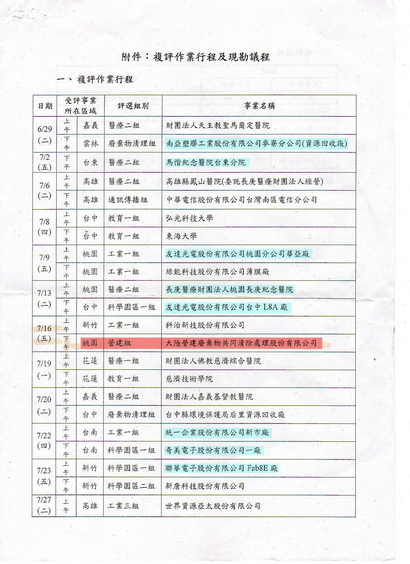 附件：複評作業行程及現勘議程
一、複評作業行程
日期 受評事業所在區域 評選組別 事業名稱
6/29(二) 上午 嘉義 醫療二組 財團法人天主教聖馬爾定醫院
下午 雲林 廢棄物清理組 南亞塑膠工業股份有限公司麥寮分公司(資源回收廠)
7/2(五) 下午 台東 醫療二組 馬偕紀念醫院台東分院
7/6(二) 上午 高雄 醫療二組 高雄縣鳳山醫院(委託長庚醫療財團法人經營)
下午 高雄 通訊傳播組 中華電信股份有限公司台灣南區電信分公司
7/8(四) 上午 台中 教育一組 弘光科技大學
下午 台中 教育一組 東海大學
7/9(五) 上午 桃園 工業一組 友達光電股份有限公司桃園分公司華亞廠
下午 桃園 工業一組 綠能科技股份有限公司薄膜廠
7/13(二) 上午 桃園 醫療二組 長庚醫療財團法人桃園長庚紀念醫院
下午 台中 科學園區一組 友達光電股份有限公司台中 L8A 廠
7/16(五) 上午 新竹 工業一組 科治新技股份有限公司
下午 桃園 營建組 大陸營建廢棄物共同清除處理股份有限公司
7/19(一) 上午 花蓮 醫療一組 財團法人佛教慈濟綜合醫院
下午 花蓮 教育一組 慈濟技術學院
7/20(二) 上午 嘉義 醫療二組 財團法人嘉義基督教醫院
下午 台中 廢棄物清理組 台中縣環境保護局后里資源回收廠
7/22(四) 上午 台南 工業一組 統一企業股份有限公司新市廠
下午 台南 科學園區一組 奇美電子股份有限公司一廠
7/23(五) 上午 新竹 科學園區一組 聯華電子股份有限公司 Fab8E 廠
下午 新竹 科學園區二組 新唐科技股份有限公司
7/27(二) 上午 高雄 工業三組 世界資源亞太股份有限公司